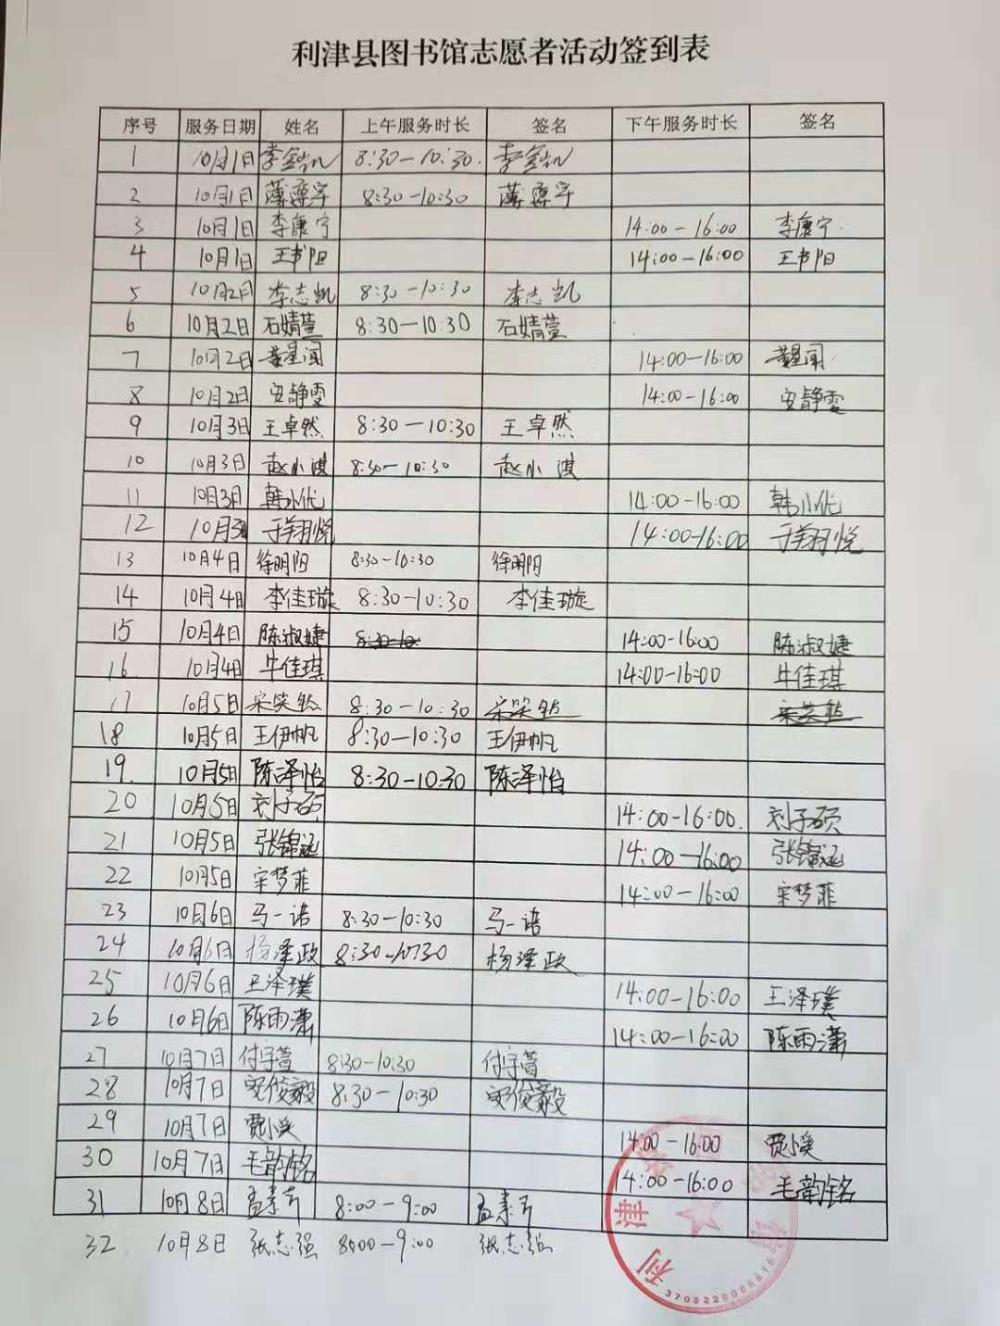 利津县图书馆志愿者活动签到表
序号 服务日期 姓名 上午服务时长 签名 下午服务时长 签名
1 10月1日 李金凯 8:30-10:30. 李金凯
2 10月1日 薄尊宇 8:30-10:30 薄尊宇
3 10月1日 李康宁 14:00-16:00 李康宁.
4 10月1日 王书阳 14:00-16:00 王书阳
5 10月2日 李志凯 8:30-10:30 李志凯
6 10月2日 石婧萱 8:30-10:30 石婧萱
7 10月2日 黄星闻 14:00-16:00 黄星闻
8 10月2日 安静雯 14:00-16:00 安静雯
9 10月3日 王卓然 8:30-10:30 王卓然
10 10月3日 赵小淇 8:30-10:30 赵小淇
11 10月3日 韩小优 14:00-16:00 韩小优
12 10月3日 于翔悦 14:00-16:00 于翔悦
13 10月4日 徐明阳 8:30-10:30 徐明阳
14 10月4日 李佳璇 8:30-10:30 李佳璇
15 10月4日 陈淑婕 8:30-10: 14:00-16:00 陈淑婕
16 10月4日 牛佳琪 14:00-16:00 牛佳琪
17 10月5日 宋笑然 8:30-10:30 宋笑然
18 10月5日 王伊帆 8:30-10:30 王伊帆
19. 10月5日 陈泽怡 8:30-10:30 陈泽怡
20 10月5日 刘子硕 14:00-16:00. 刘子硕
21 10月5日 张锦涵 14:00-16:00 张锦涵
22 10月5日 宋梦菲 14:00-16:00 宋梦菲
23 10月6日 马一诺 8:30-10:30 马一诺
24 10月6日 杨泽政 8:30-10:30 杨泽政
25 10月6日 王泽璞 14:00-16:00 王泽璞
26 10月6日 陈雨潇 14:00-16:00 陈雨潇
27 10月7日 付宇萱 8:30-10:30 付宇萱
28 10月7日 俊毅 8:30-10:30 俊毅
29 10月7日 贾小溪 14:00-16:00 贾小溪
30 10月7日 毛韵铭 14:00-16:00 毛韵铭
31 10月8日 孟素芹 8:00-9:00 孟素芹
32 10月8日 张志强 8:00-9:00 张志强
利津